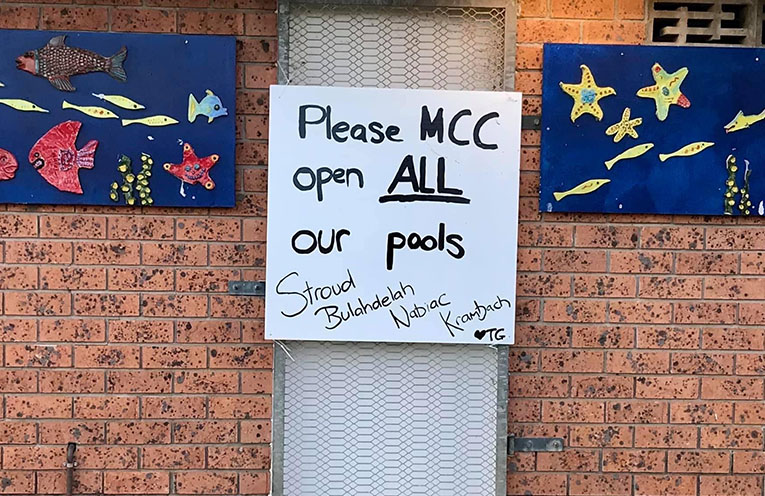 Please MCC
open ALL
our pools
Stroud
Bulahdelah
Nabiac
Krambach
♥TG